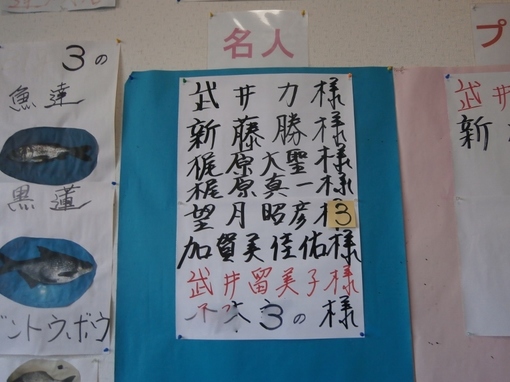 3の
魚達
黒蓮
ントウボウ
名人
武井力様
新藤勝様
梶原大聖様
梶原真一様
望月昭彦様
3
加賀美佳佑様
武井留美子様
3の様
プ
武井
新